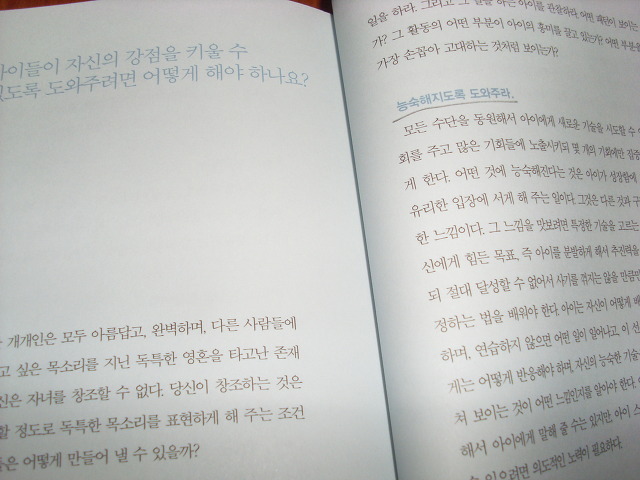 아이들이 자신의 강점을 키울 수
있도록 도와주려면 어떻게 해야 하나요?
개개인은 모두 아름답고, 완벽하며, 다른 사람들에
고 싶은 목소리를 지닌 독특한 영혼을 타고난 존재
신은 자녀를 창조할 수 없다. 당신이 창조하는 것은
할 정도로 독특한 목소리를 표현하게 해 주는 조건
들은 어떻게 만들어 낼 수 있을까?
일을 하라. 그리고 그 일을 하는 아이를 관찰하라. 어떤 패턴이 보이는
가? 그 활동의 어떤 부분이 아이의 흥미를 끌고 있는가? 어떤 부분을
가장 손꼽아 고대하는 것처럼 보이는가?
능숙해지도록 도와주라.
모든 수단을 동원해서 아이에게 새로운 기술을 시도할 수
회를 주고 많은 기회들에 노출시키되 몇 개의 기회에만 집중
게 한다. 어떤 것에 능숙해진다는 것은 아이가 성장함에
유리한 입장에 서게 해 주는 일이다. 그것은 다른 것과 구
한 느낌이다. 그 느낌을 맛보려면 특정한 기술을 고르는
신에게 힘든 목표, 즉 아이를 분발하게 해서 추진력을
되 절대 달성할 수 없어서 사기를 꺾지는 않을 만큼만
정하는 법을 배워야 한다. 아이는 자신이 어떻게
하며, 연습하지 않으면 어떤 일이 일어나고, 이
게는 어떻게 반응해야 하며, 자신의 능숙한 기술
쳐 보이는 것이 어떤 느낌인지를 알아야 한다.
해서 아이에게 말해 줄 수는 있지만 아이 스
수 있으려면 의도적인 노력이 필요하다.